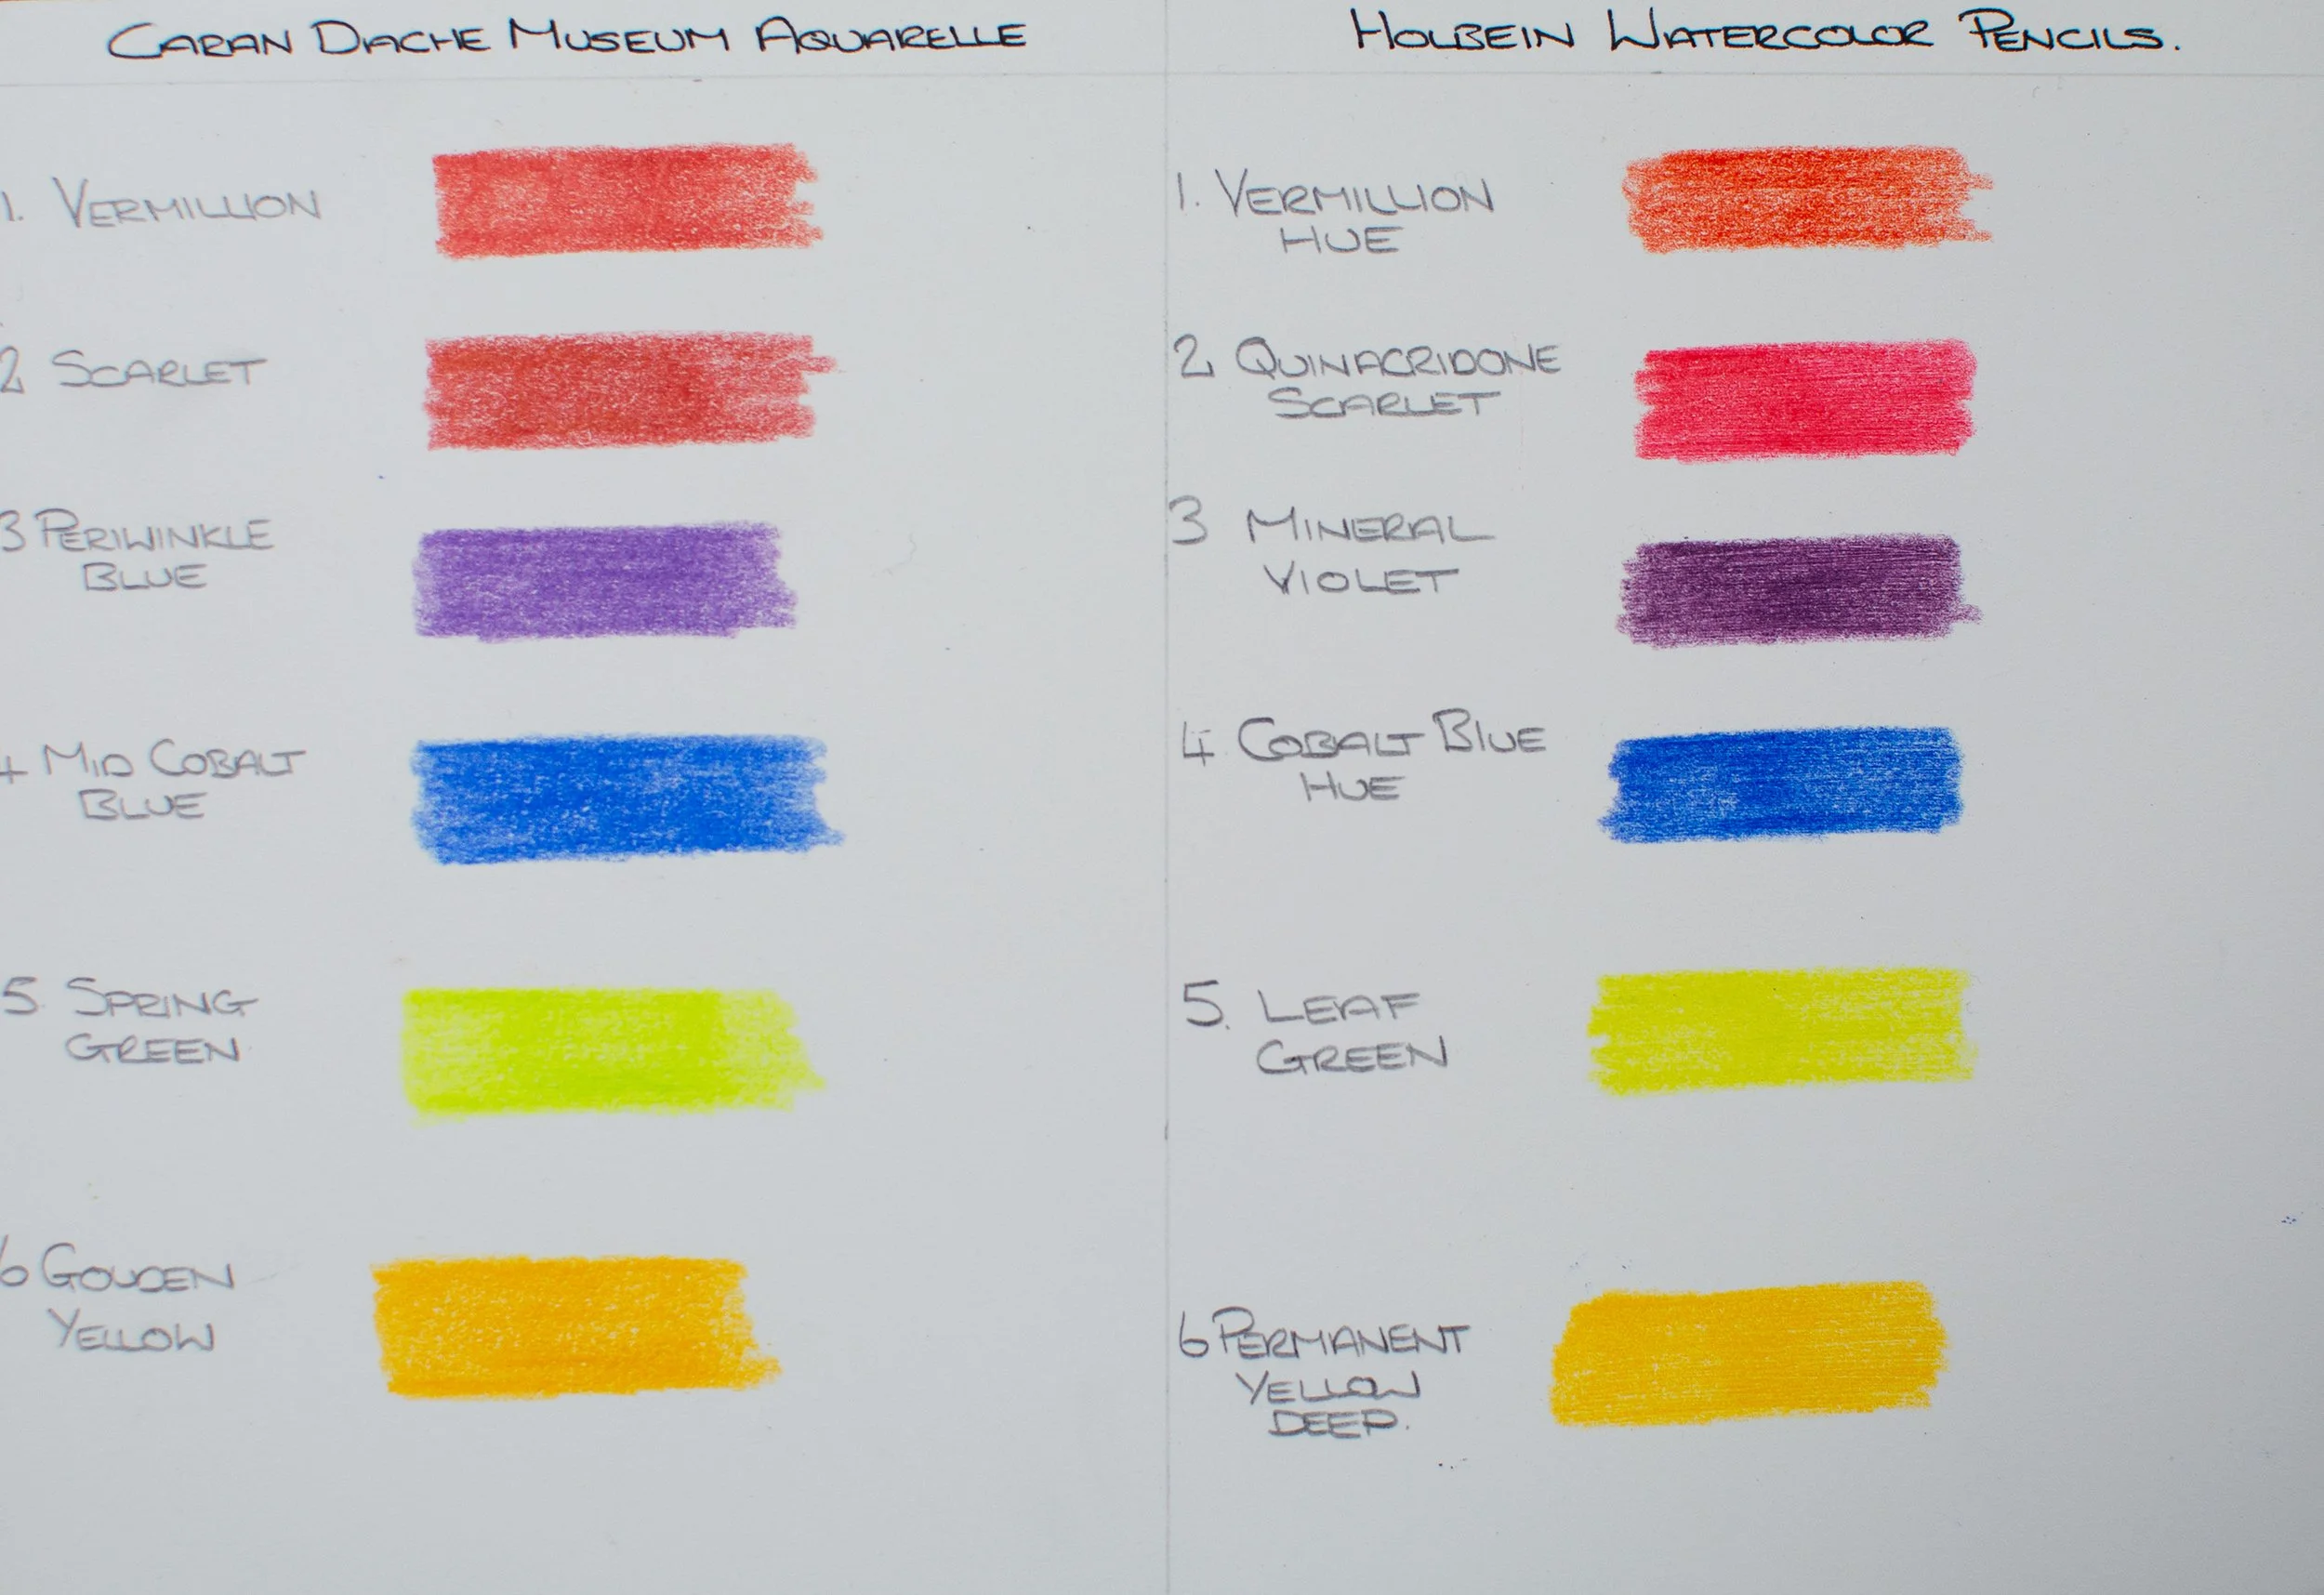 CARAN DACHE MUSEUM AQUARELLE
1. VERMILLION
2 SCARLET
3 PERIWINKLE
BLUE
4 MID COBALT
BLUE
5 SPRING
GREEN
6 GOLDEN
YELLOW
HOLBEIN WATERCOLOR PENCILS.
1. VERMILLION
HUE
2 QUINACRIDONE
SCARLET
3 MINERAL
VIOLET
4 COBALT BLUE
HUE
5. LEAF
GREEN
6 PERMANENT
YELLOW
DEEP.